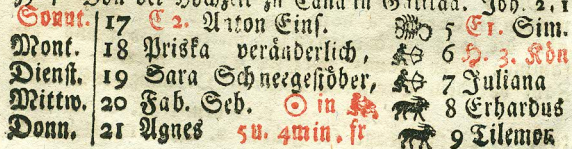 Von der Hochzeit zu Cana in Galiläa. Joh. 2, 1
Sonnt. 17 C 2. Anton Einſ. 5 E1. Sim.
Mont. 18 Priſka veränderlich, 6 H. 3. Kön
Dienſt. 19 Sara Schneegeſtöber, 7 Juliana
Mittw. 20 Fab. Seb. ☉ in 8 Erhardus
Donn. 21 Agnes 5u. 4min. fr 9 Tilemon